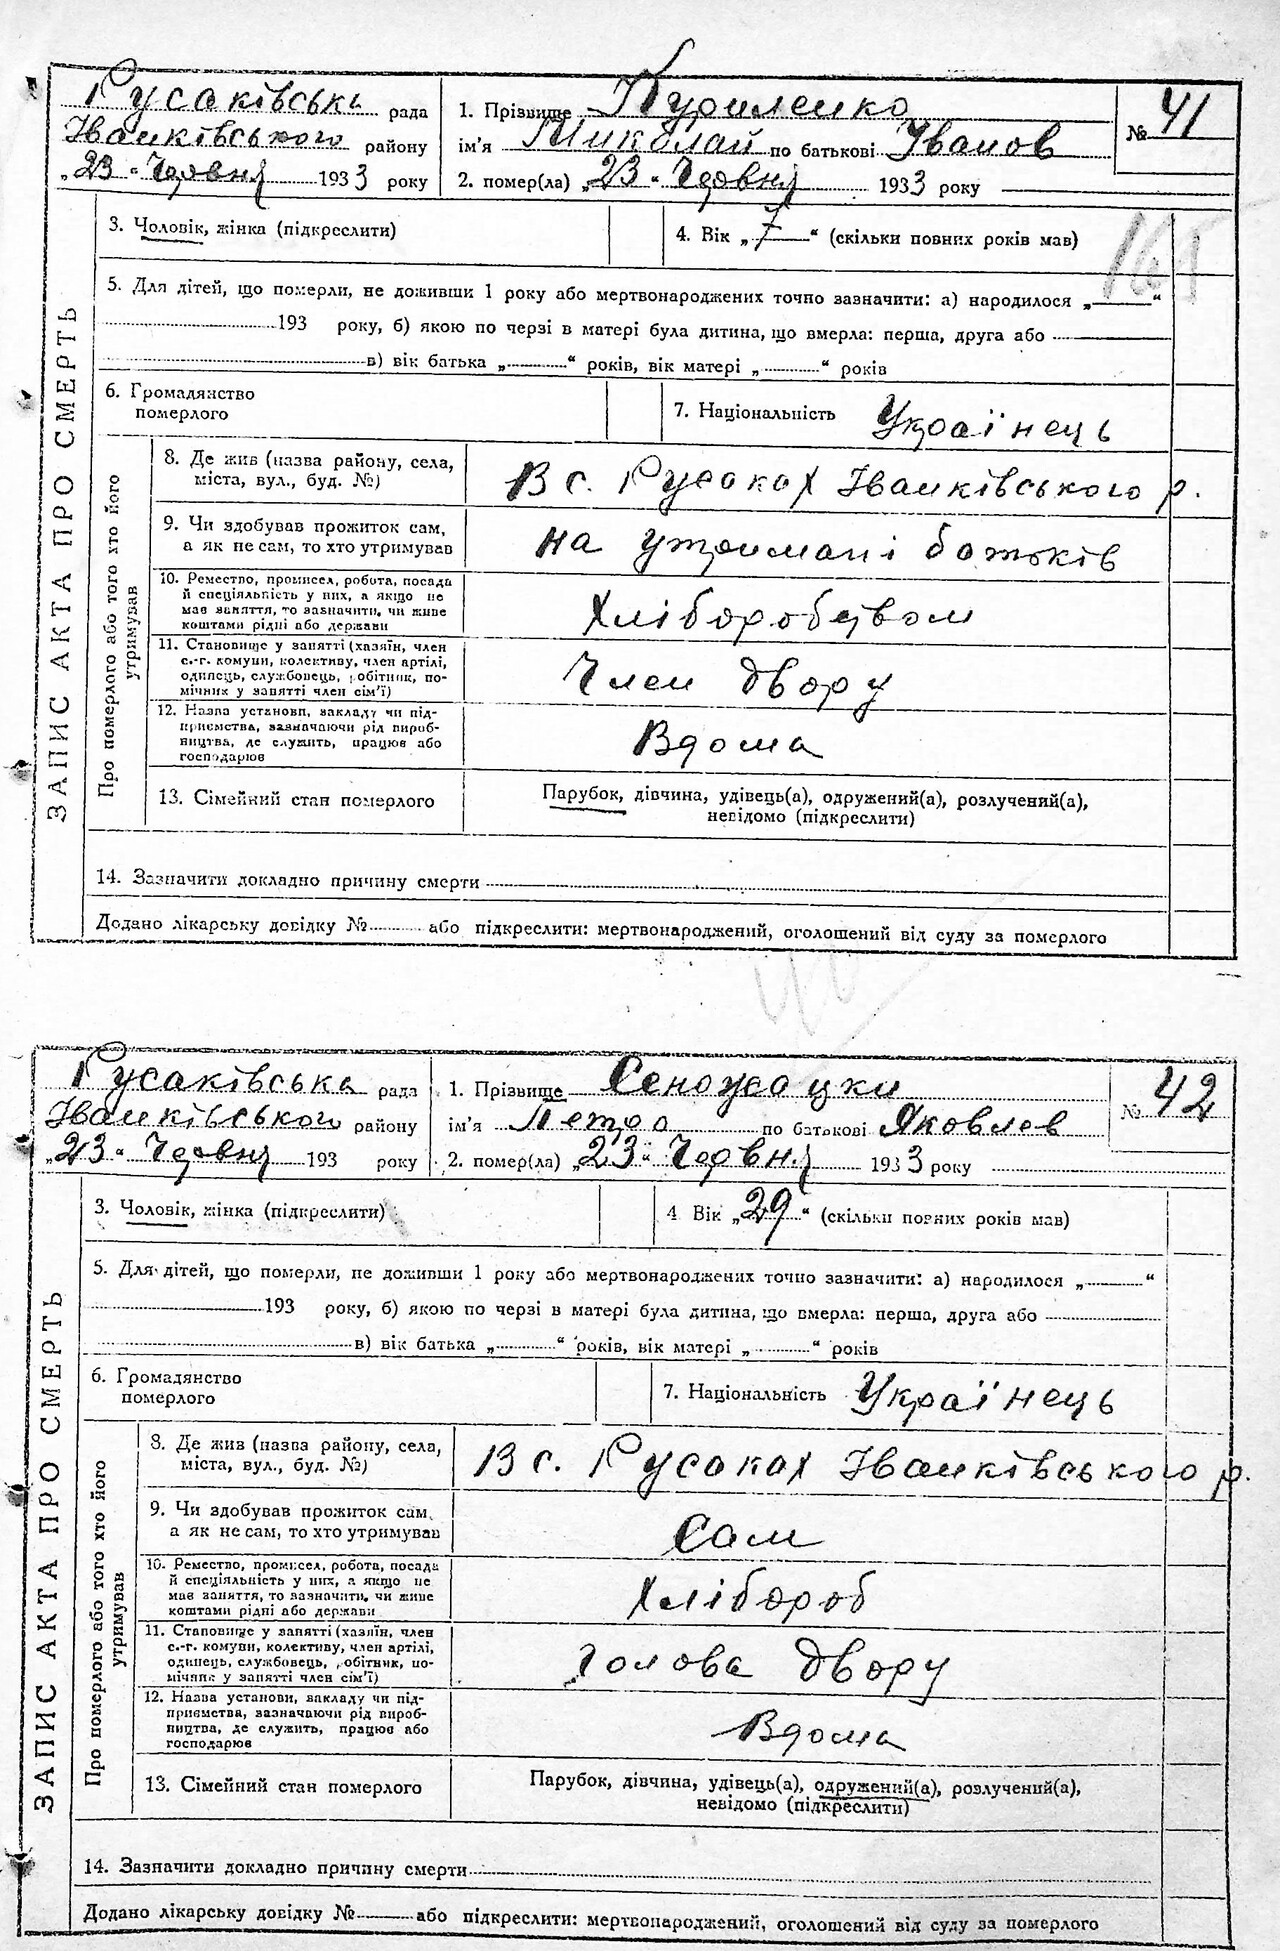 Русаківська рада
Іванківського району
„23“ Червня 1933 року
1. Прізвище Куриленко
ім'я Миколай по батькові Іванов
2. помер(ла) „23“ Червня 1933 року
№ 41
3. Чоловік, жінка (підкреслити)
4. Вік „7“ (скільки повних років мав)
165
5. Для дітей, що померли, не доживши 1 року або мертвонароджених точно зазначити: а) народилося „ “
193 року, б) якою по черзі в матері була дитина, що вмерла: перша, друга або
в) вік батька „ “ років, вік матері „ “ років
6. Громадянство
померлого
7. Національність Українець
ЗАПИС АКТА ПРО СМЕРТЬ
Про померлого або того хто його
утримував
8. Де жив (назва району, села,
міста, вул., буд. №)
В с. Русаках Іванківського р.
9. Чи здобував прожиток сам,
а як не сам, то хто утримував
на утримані батьків
10. Ремество, промисел, робота, посада
й спеціяльність у них, а якщо не
має заняття, то зазначити, чи живе
коштами рідні або держави
Хліборобством
11. Становище у занятті (хазяїн, член
с.-г. комуни, колективу, член артілі,
одинець, службовець, робітник, по-
мічник у занятті член сім'ї)
Член двору
12. Назва установи, закладу чи під-
приємства, зазначаючи рід вироб-
ництва, де служить, працює або
господарює
Вдома
13. Сімейний стан померлого
Парубок, дівчина, удівець(а), одружений(а), розлучений(а),
невідомо (підкреслити)
14. Зазначити докладно причину смерти
Додано лікарську довідку № або підкреслити: мертвонароджений, оголошений від суду за померлого
Русаківська рада
Іванківського району
„23“ Червня 193 року
1. Прізвище Сеножацки
ім'я Петро по батькові Яковлев
2. помер(ла) „23“ Червня 1933 року
№ 42
3. Чоловік, жінка (підкреслити)
4 Вік „29“ (скільки повних років мав)
5. Для дітей, що померли, не доживши 1 року або мертвонароджених точно зазначити: а) народилося „ “
193 року, б) якою по черзі в матері була дитина, що вмерла: перша, друга або
в) вік батька „ “ років, вік матері „ “ років
6. Громадянство
померлого
7. Національність Українець
ЗАПИС АКТА ПРО СМЕРТЬ
Про померлого або того хто його
утримував
8. Де жив (назва району, села,
міста, вул., буд. №)
В с. Русаках Іванківського р.
9. Чи здобував прожиток сам,
а як не сам, то хто утримував
Сам
10. Ремество, промисел, робота, посада
й спеціяльність у них, а якщо не
має заняття, то зазначити, чи живе
коштами рідні або держави
Хлібороб
11. Становище у занятті (хазяїн, член
с.-г. комуни, колективу, член артілі,
одинець, службовець, робітник, по-
мічник у занятті член сім'ї)
голова двору
12. Назва установи, закладу чи під-
приємства, зазначаючи рід вироб-
ництва, де служить, працює або
господарює
Вдома
13. Сімейний стан померлого
Парубок, дівчина, удівець(а), одружений(а), розлучений(а),
невідомо (підкреслити)
14. Зазначити докладно причину смерти
Додано лікарську довідку № або підкреслити: мертвонароджений, оголошений від суду за померлого